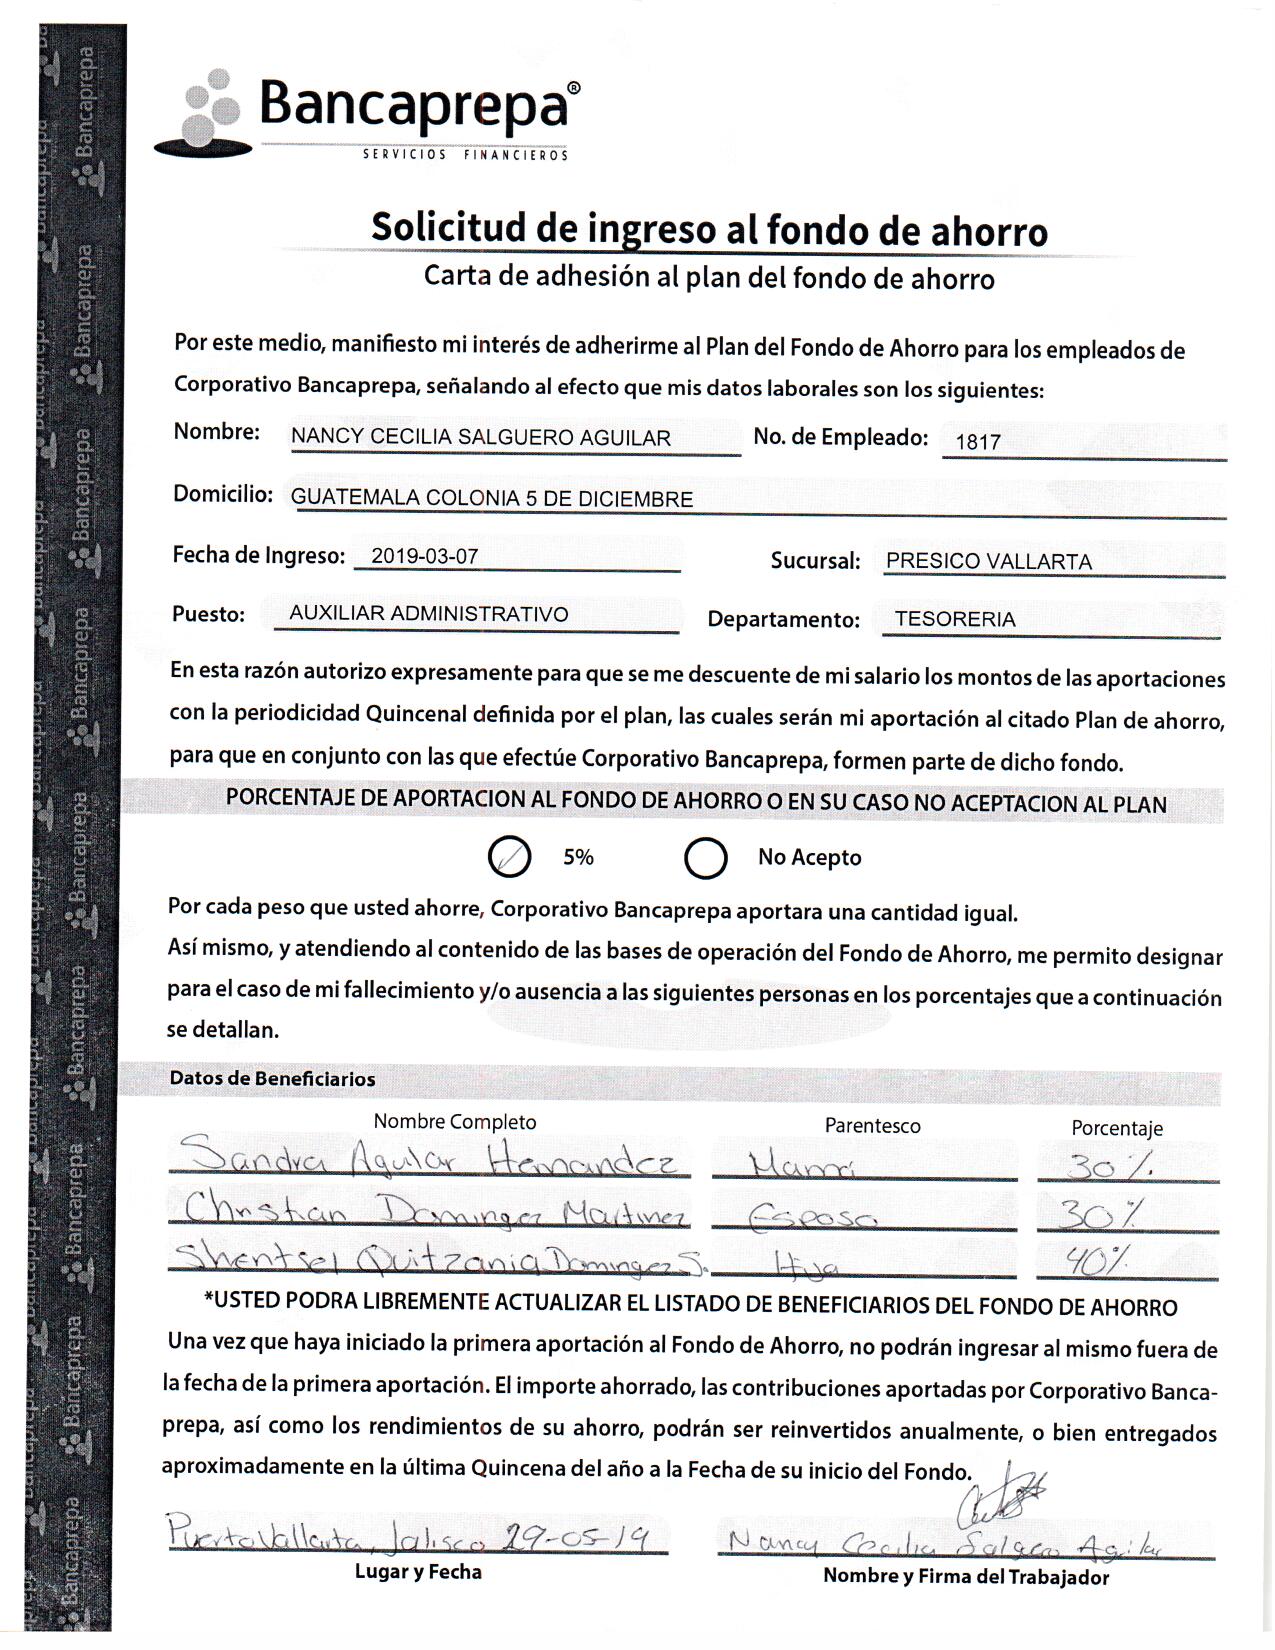 Bancaprepa®
SERVICIOS FINANCIEROS
Solicitud de ingreso al fondo de ahorro
Carta de adhesión al plan del fondo de ahorro
Por este medio, manifiesto mi interés de adherirme al Plan del Fondo de Ahorro para los empleados de
Corporativo Bancaprepa, señalando al efecto que mis datos laborales son los siguientes:
Nombre: NANCY CECILIA SALGUERO AGUILAR No. de Empleado: 1817
Domicilio: GUATEMALA COLONIA 5 DE DICIEMBRE
Fecha de Ingreso: 2019-03-07 Sucursal: PRESICO VALLARTA
Puesto: AUXILIAR ADMINISTRATIVO Departamento: TESORERIA
En esta razón autorizo expresamente para que se me descuente de mi salario los montos de las aportaciones
con la periodicidad Quincenal definida por el plan, las cuales serán mi aportación al citado Plan de ahorro,
para que en conjunto con las que efectúe Corporativo Bancaprepa, formen parte de dicho fondo.
PORCENTAJE DE APORTACION AL FONDO DE AHORRO O EN SU CASO NO ACEPTACION AL PLAN
5% No Acepto
Por cada peso que usted ahorre, Corporativo Bancaprepa aportara una cantidad igual.
Así mismo, y atendiendo al contenido de las bases de operación del Fondo de Ahorro, me permito designar
para el caso de mi fallecimiento y/o ausencia a las siguientes personas en los porcentajes que a continuación
se detallan.
Datos de Beneficiarios
Nombre Completo Parentesco Porcentaje
Sandra Aguilar Hernandez Mamá 30%
Christian Dominguez Martinez Esposo 30%
Shentsel Quitzania Dominguez S. Hija 40%
*USTED PODRA LIBREMENTE ACTUALIZAR EL LISTADO DE BENEFICIARIOS DEL FONDO DE AHORRO
Una vez que haya iniciado la primera aportación al Fondo de Ahorro, no podrán ingresar al mismo fuera de
la fecha de la primera aportación. El importe ahorrado, las contribuciones aportadas por Corporativo Banca-
prepa, así como los rendimientos de su ahorro, podrán ser reinvertidos anualmente, o bien entregados
aproximadamente en la última Quincena del año a la Fecha de su inicio del Fondo.
Puerto Vallarta, Jalisco 29-05-19 Nancy Cecilia Salguero Aguilar
Lugar y Fecha Nombre y Firma del Trabajador